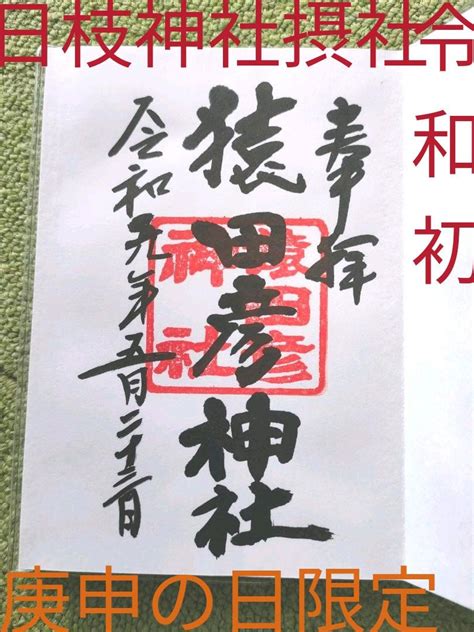 日枝神社摂社
令和初
奉拝
猿田彦神社
猿田彦
神社
令和元年五月二十三日
庚申の日限定